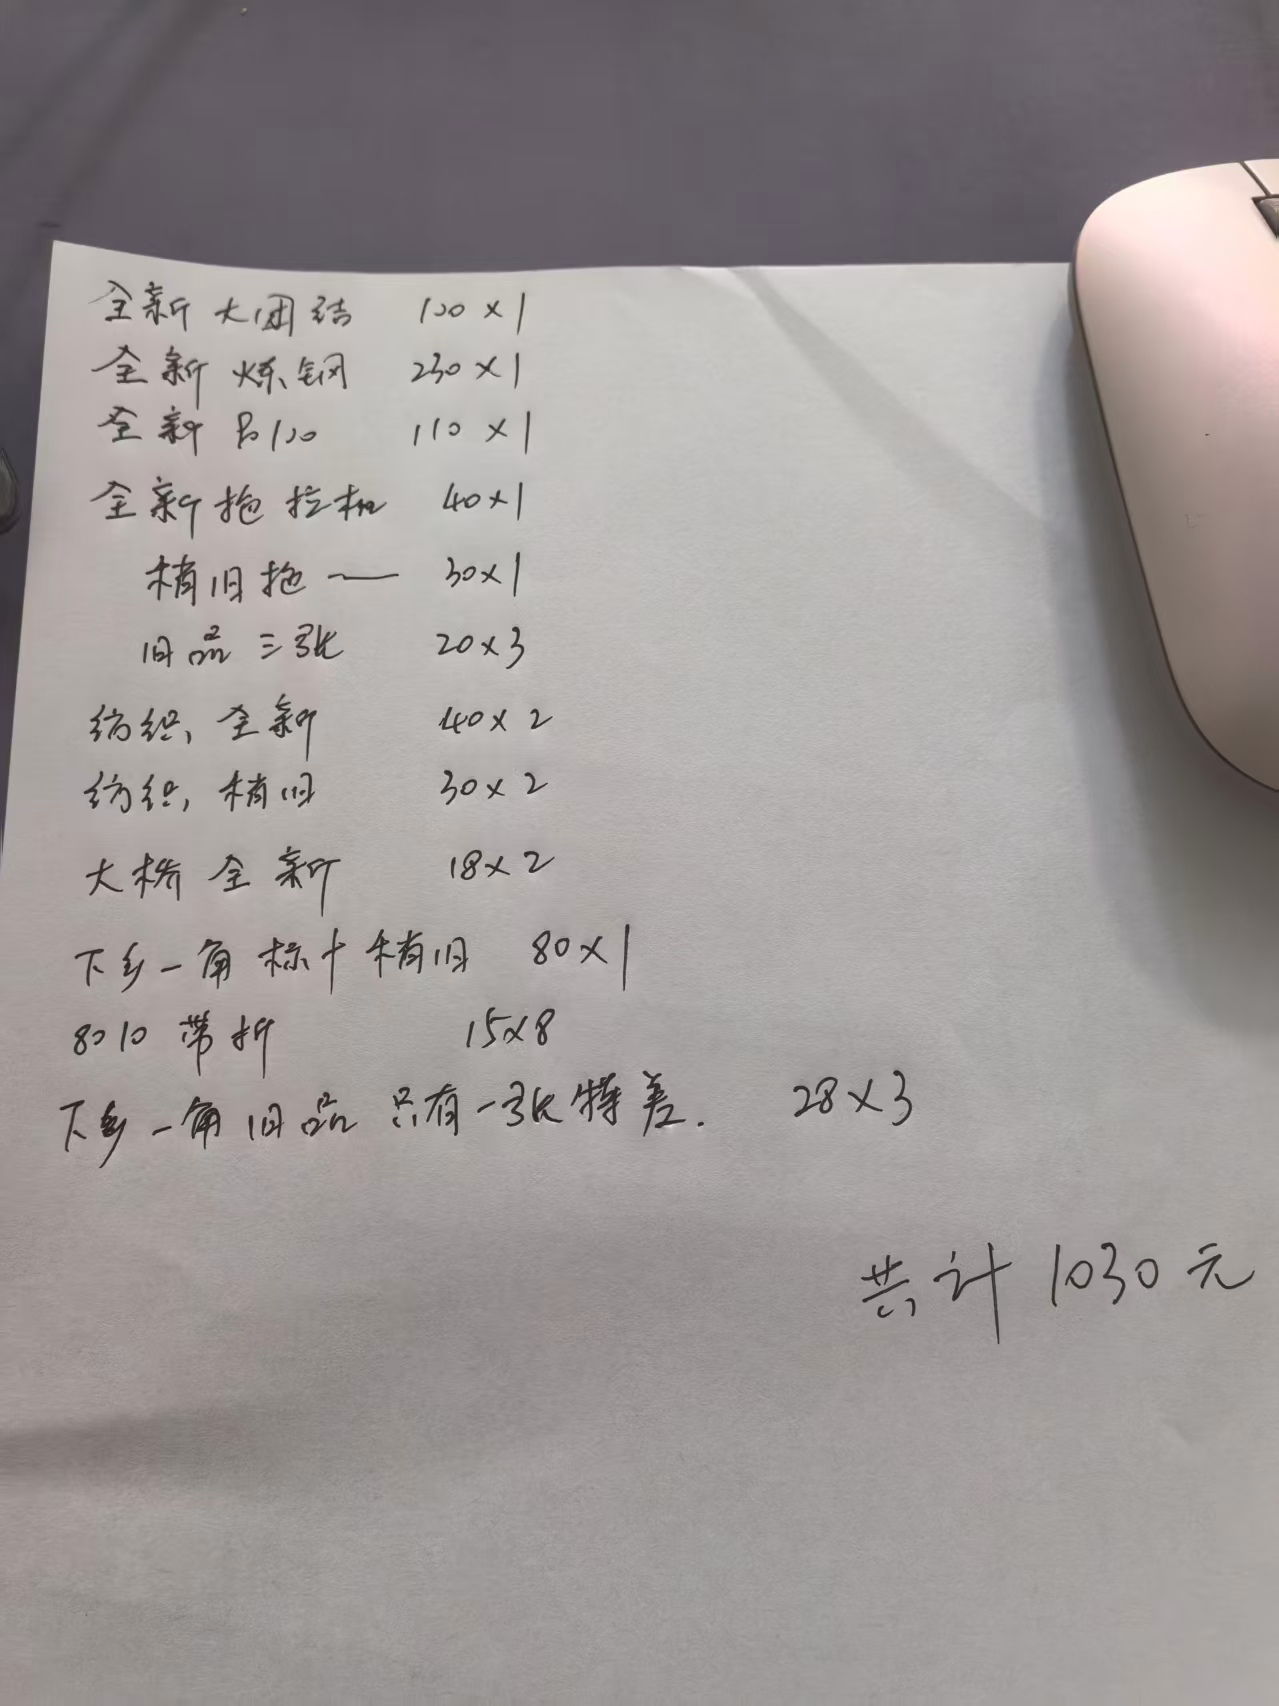 全新大团结 100×1
全新炼钢 230×1
全新吕100 110×1
全新拖拉机 40×1
稍旧拖一 30×1
旧品三张 20×3
纺织,全新 40×2
纺织,稍旧 30×2
大桥全新 18×2
下乡一角标十稍旧 80×1
8010带折 15×8
下乡一角旧品只有一张特差. 28×3
共计1030元